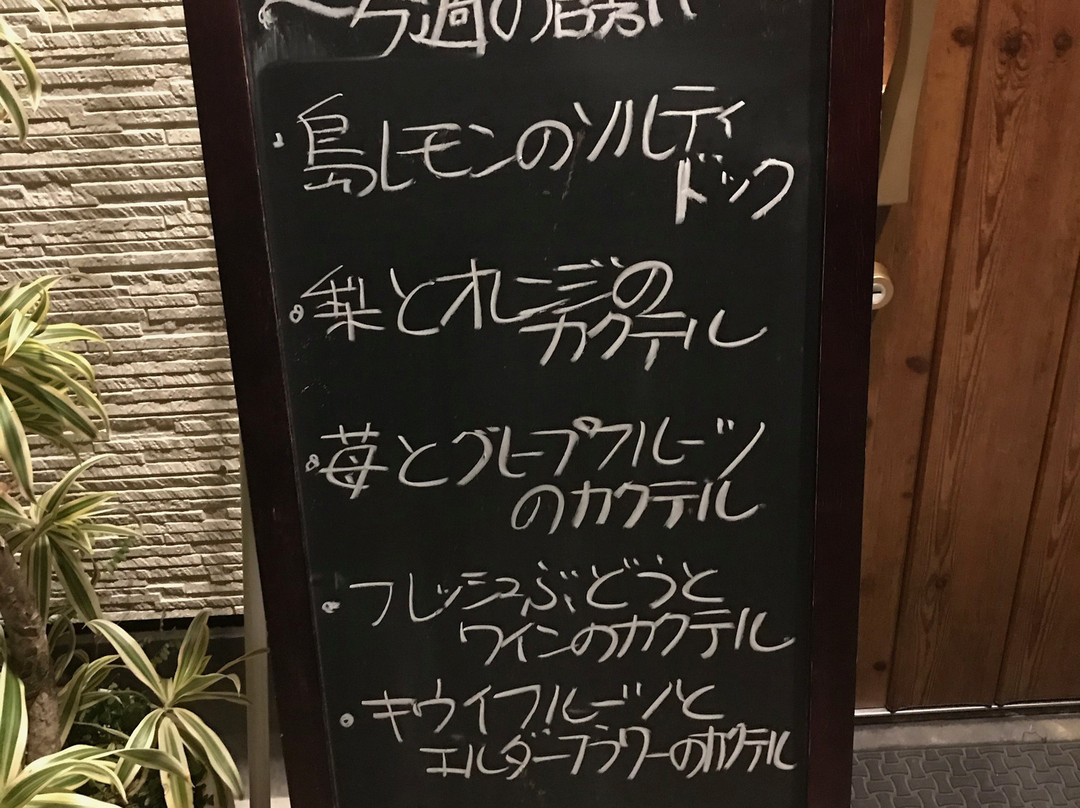 ～今週のお
・島レモンのソルティ
ドック
・梨とオレンジの
カクテル
・苺とグレープフルーツ
のカクテル
・フレッシュぶどうと
ワインのカクテル
・キウイフルーツと
エルダーフラワーのカクテル